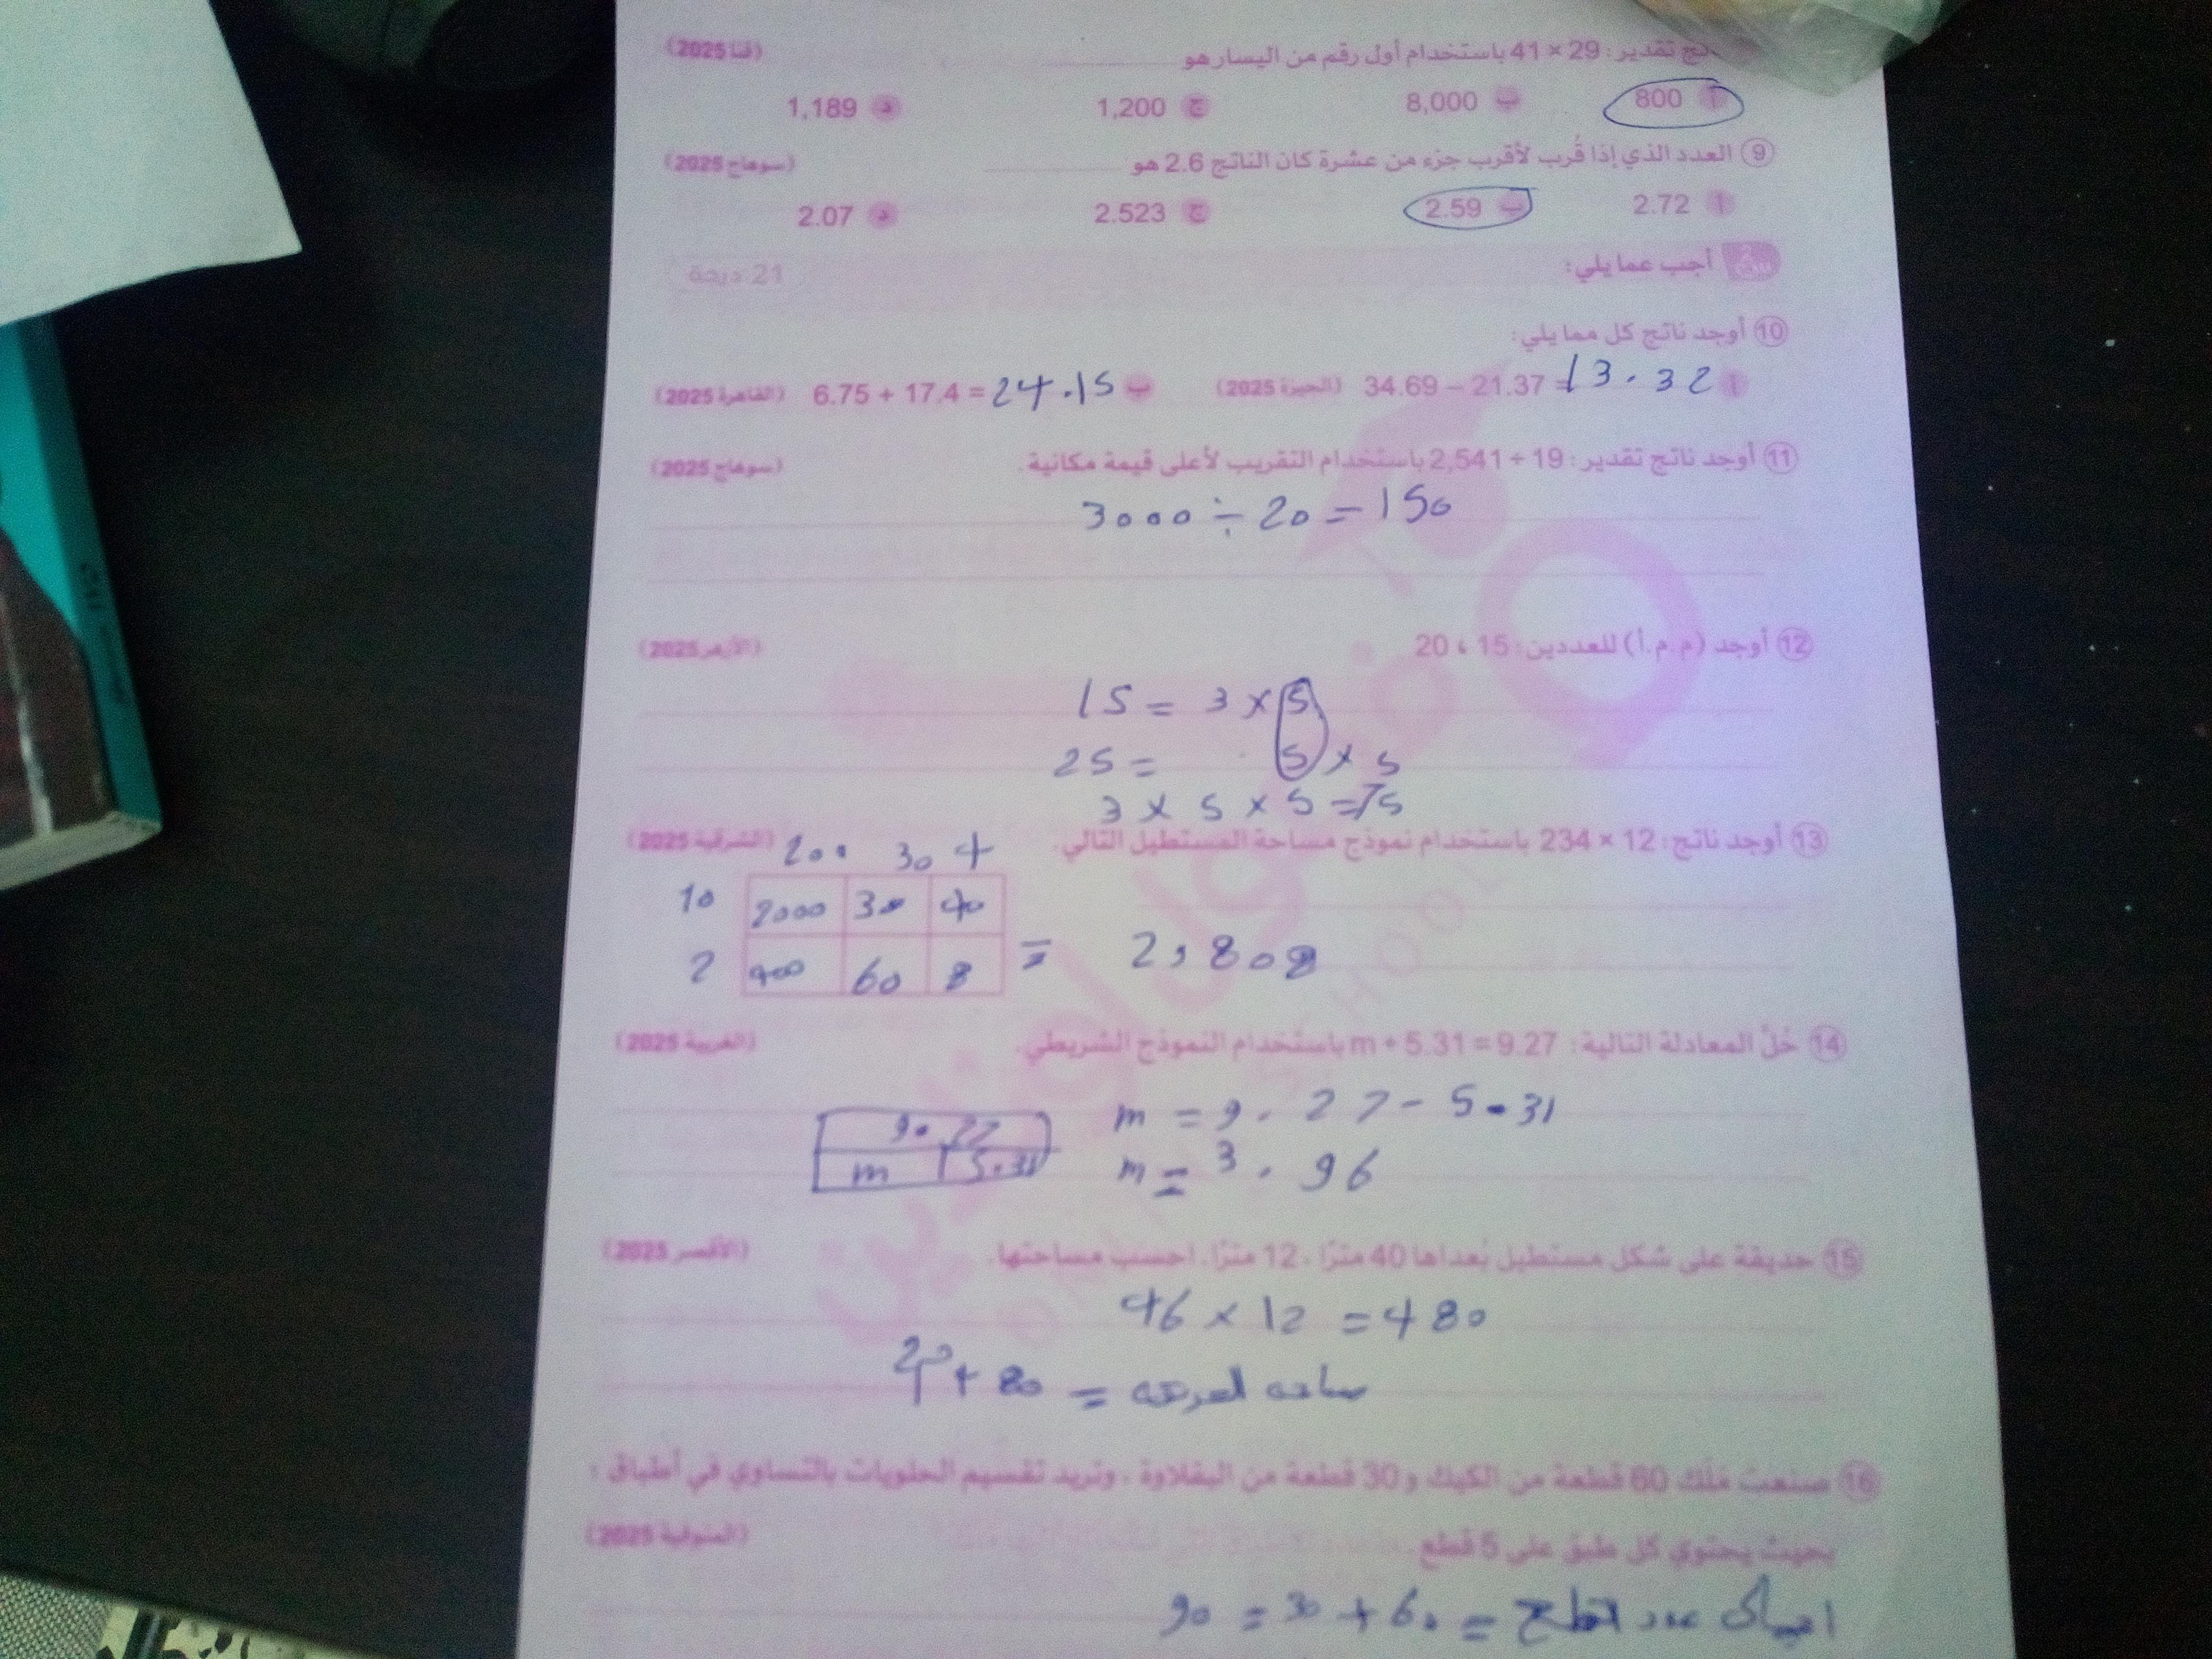 ناتج تقدير: 29 × 41 باستخدام أول رقم من اليسار هو (قنا 2025)
أ 800 ب 8,000 ج 1,200 د 1,189
9 العدد الذي إذا قُرب لأقرب جزء من عشرة كان الناتج 2.6 هو (سوهاج 2025)
أ 2.72 ب 2.59 ج 2.523 د 2.07
أجب عما يلي: 21 درجة
10 أوجد ناتج كل مما يلي:
أ 34.69 – 21.37 = 13.32 (الجيزة 2025) ب 6.75 + 17.4 = 24.15 (القاهرة 2025)
11 أوجد ناتج تقدير: 19 ÷ 2,541 باستخدام التقريب لأعلى قيمة مكانية. (سوهاج 2025)
3000 ÷ 20 = 150
12 أوجد (م.م.أ) للعددين: 15 ، 20 (الأزهر 2025)
15 = 3 × 5
25 = 5 × 5
3 × 5 × 5 = 75
13 أوجد ناتج: 12 × 234 باستخدام نموذج مساحة المستطيل التالي. (الشرقية 2025)
200 30 4
10 2000 300 40
2 400 60 8 = 2,808
14 حُلّ المعادلة التالية: m + 5.31 = 9.27 باستخدام النموذج الشريطي. (الغربية 2025)
m = 9.27 - 5.31
9.27
m 5.31
m = 3.96
15 حديقة على شكل مستطيل بُعداها 40 مترًا ، 12 مترًا. احسب مساحتها. (الأقصر 2025)
46 × 12 = 480
= 480 م2
16 صنعت مَلَك 60 قطعة من الكيك و 30 قطعة من البقلاوة ، وتريد تقسيم الحلويات بالتساوي في أطباق ؛
بحيث يحتوي كل طبق على 5 قطع. (المنوفية 2025)
عدد القطع = 60 + 30 = 90